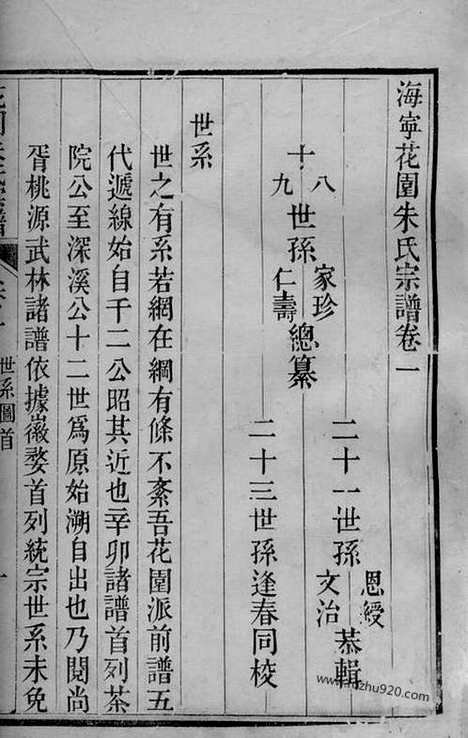 海寧花園朱氏宗譜卷一
十八九世孫家珍仁壽總纂
二十一世孫恩綬文治恭輯
二十三世孫逢春同校
世系
世之有系若網在綱有條不紊吾花園派前譜五
代遞線始自千二公昭其近也辛卯諸譜首列茶
院公至深溪公十二世爲原始溯自出也乃閱尚
胥桃源武林諸譜依據徽婺首列統宗世系未免
世系圖首
一
zhu920.com